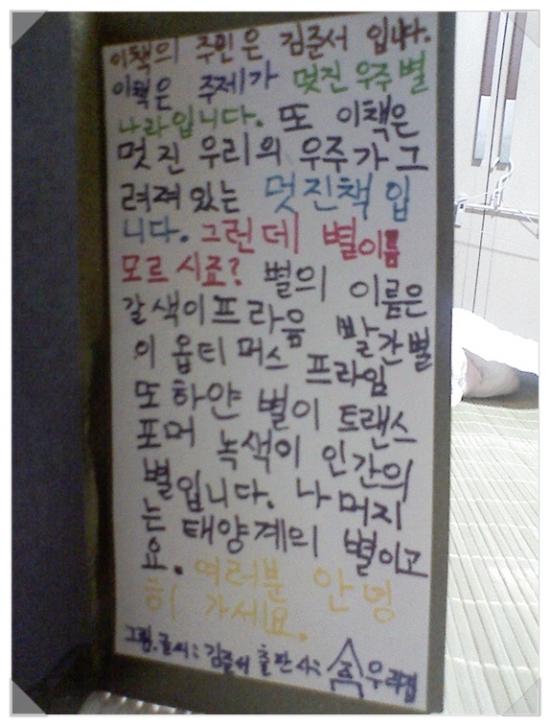 이책의 주인은 김준서 입니다.
이책은 주제가 멋진 우주별
나라입니다. 또 이책은
멋진 우리의 우주가 그
려져 있는 멋진책 입
니다. 그런데 별이름
모르시죠? 별의 이름은
갈색이 프라음 빨간별
이 옵티머스 프라임
또 하얀 별이 트랜스
포머 녹색이 인간의
별입니다. 나머지
는 태양계의 별이고
요. 여러분 안녕
히 가세요.
그림.글씨: 김준서 출판사: 우리집